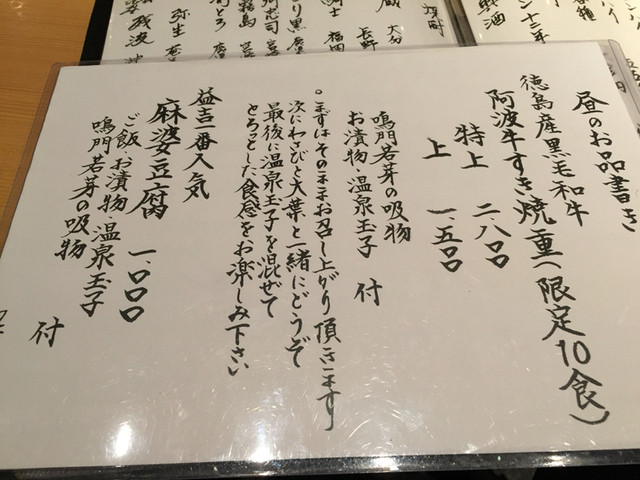 昼のお品書き
徳島産黒毛和牛
阿波牛すき焼重(限定10食)
特上 二、八〇〇
上 一、五〇〇
鳴門若芽の吸物
お漬物・温泉玉子 付
。まずはそのままお召し上がり頂きます
次にわさびと大葉と一緒にどうぞ
最後に温泉玉子を混ぜて
とろっとした食感をお楽しみ下さい
益吉一番人気
麻婆豆腐 一、〇〇〇
ご飯・お漬物・温泉玉子
鳴門若芽の吸物
付
焼酎
弥生
残波